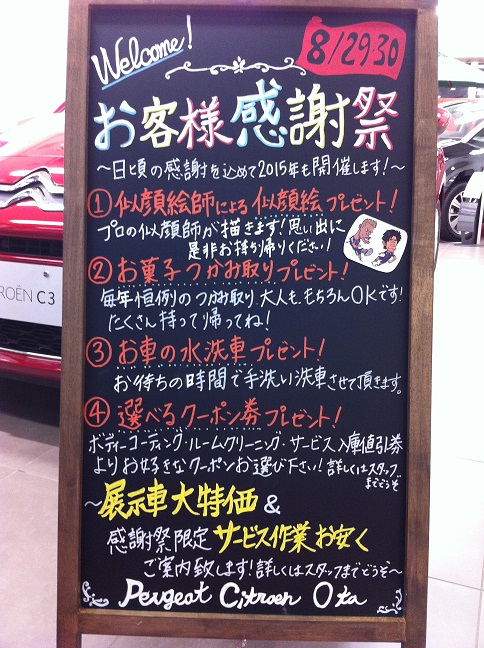 Welcome!
8/29.30
お客様感謝祭
～日頃の感謝を込めて2015年も開催します！～
①似顔絵師による似顔絵プレゼント！
プロの似顔師が描きます！思い出に
是非お持ち帰りください！
②お菓子つかみ取りプレゼント！
毎年恒例のつかみ取り大人も、もちろんOKです！
たくさん持って帰ってね！
③お車の水洗車プレゼント！
お待ちの時間で手洗い洗車させて頂きます。
④選べるクーポン券プレゼント！
ボディーコーティング・ルームクリーニング・サービス入庫値引券
よりお好きなクーポンお選び下さい！詳しくはスタッフ
までどうぞ
～展示車大特価&
感謝祭限定サービス作業お安く
ご案内致します！詳しくはスタッフまでどうぞ～
Peugeot Citroen Ota
ROËN C3